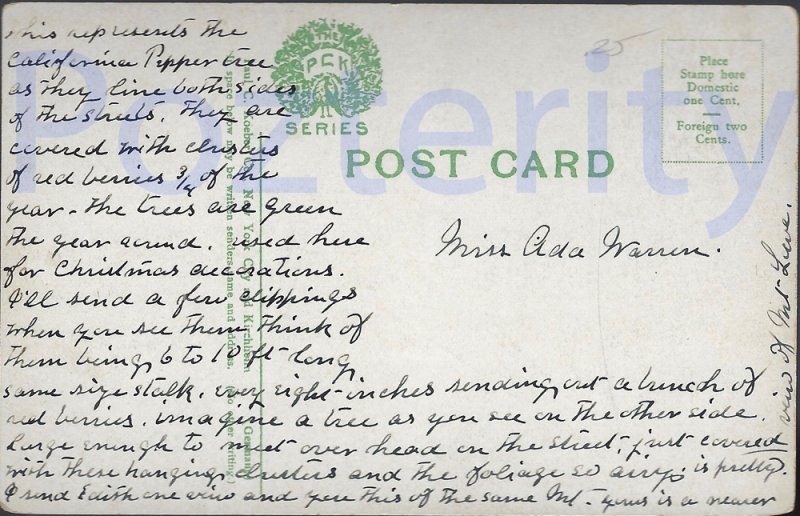 This represents the
California Pepper tree
as they line both sides
of the streets. They are
covered with clusters
of red berries 3/4 of the
year - the trees are green
the year around. used here
for Christmas decorations.
I'll send a few clippings
when you see them think of
them being 6 to 10 ft long,
same size stalk. every eight-inches sending out a bunch of
red berries. imagine a tree as you see on the other side.
Large enough to meet over head on the street, just covered
with these hanging clusters and the foliage so airy. is pretty.
I send Edith one view and you this of the same Mt - yours is a nearer
view of Mt Lowe.
THE
PCK
SERIES
POST CARD
Place
Stamp here
Domestic
one Cent,
Foreign two
Cents.
25
Miss Ada Warren.
New York City and Kirchheim
space below may be written senders name and address.
Pozterity